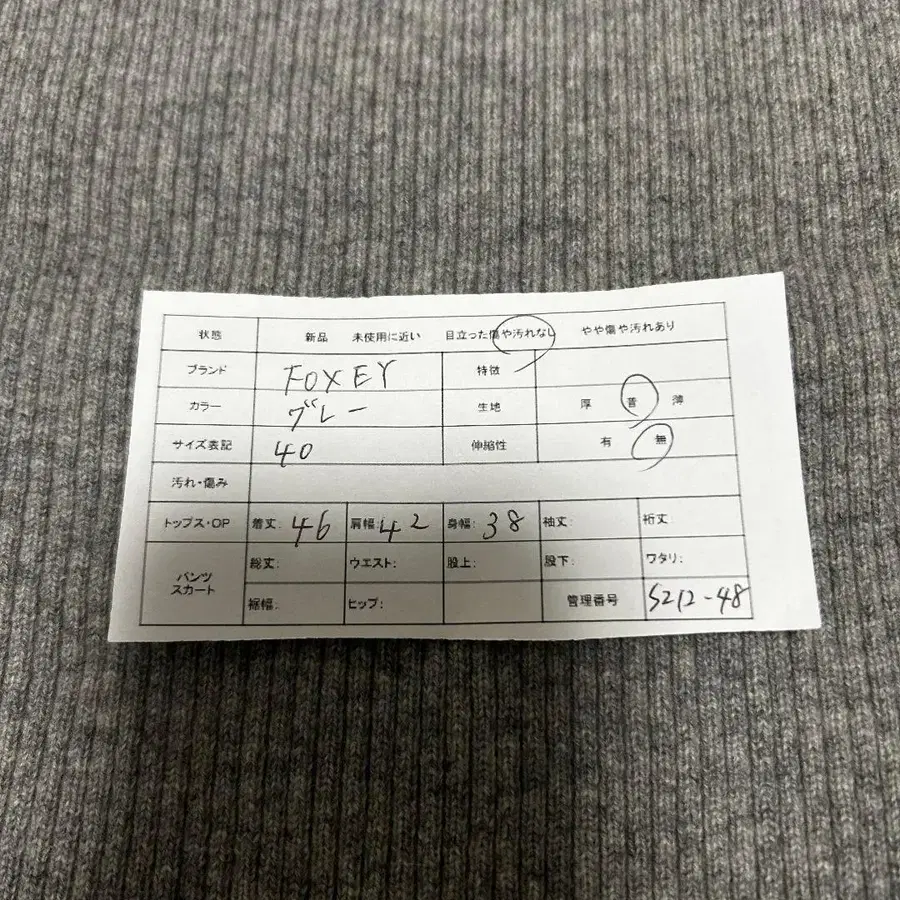 状態 新品 未使用に近い 目立った傷や汚れなし やや傷や汚れあり
ブランド FOXEY 特徴
カラー グレー 生地 厚 普 薄
サイズ表記 40 伸縮性 有 無
汚れ・傷み
トップス・OP 着丈: 46 肩幅: 42 身幅: 38 袖丈: 裄丈:
パンツ スカート 総丈: ウエスト: 股上: 股下: ワタリ:
裾幅: ヒップ: 管理番号 S212-48